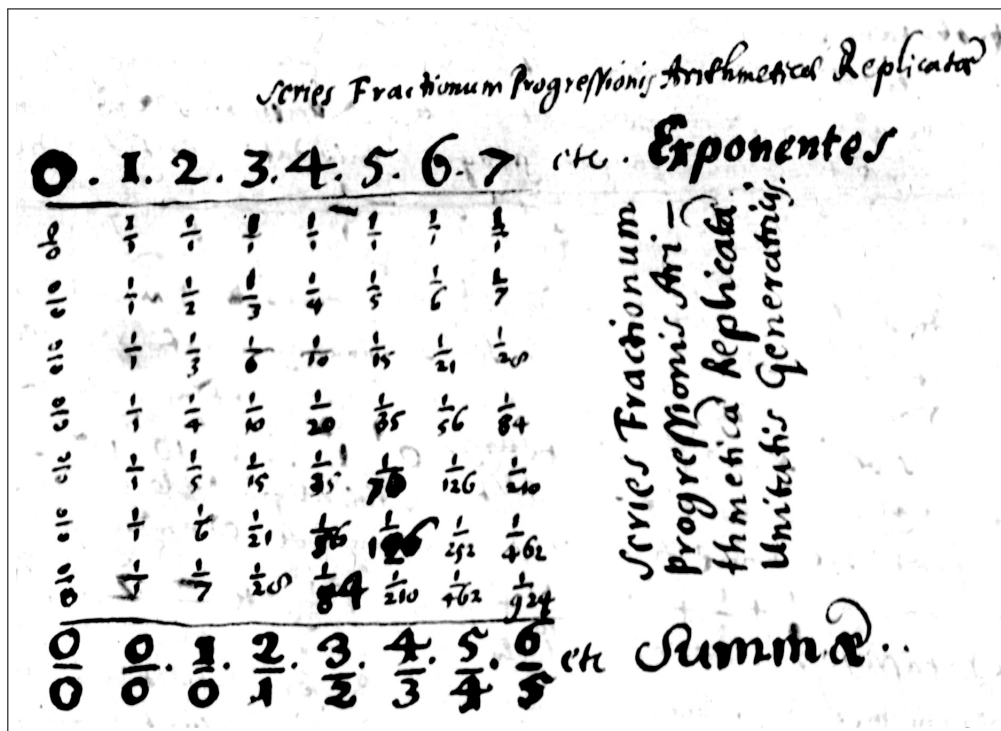 Series Fractionum Progressionis Arithmeticæ Replicatæ
0 . 1 . 2 . 3 . 4 . 5 . 6 . 7 etc . Exponentes
0/0 1/1 1/1 1/1 1/1 1/1 1/1 1/1
0/0 1/1 1/2 1/3 1/4 1/5 1/6 1/7
0/0 1/1 1/3 1/6 1/10 1/15 1/21 1/28
0/0 1/1 1/4 1/10 1/20 1/35 1/56 1/84
0/0 1/1 1/5 1/15 1/35 1/70 1/126 1/210
0/0 1/1 1/6 1/21 1/56 1/126 1/252 1/462
0/0 1/1 1/7 1/28 1/84 1/210 1/462 1/924
0/0 0/0 . 1/0 . 2/1 . 3/2 . 4/3 . 5/4 . 6/5 etc Summæ . .
Series Fractionum
progressionis Ari-
thmetica Replicata
Unitatis Generatrijs.